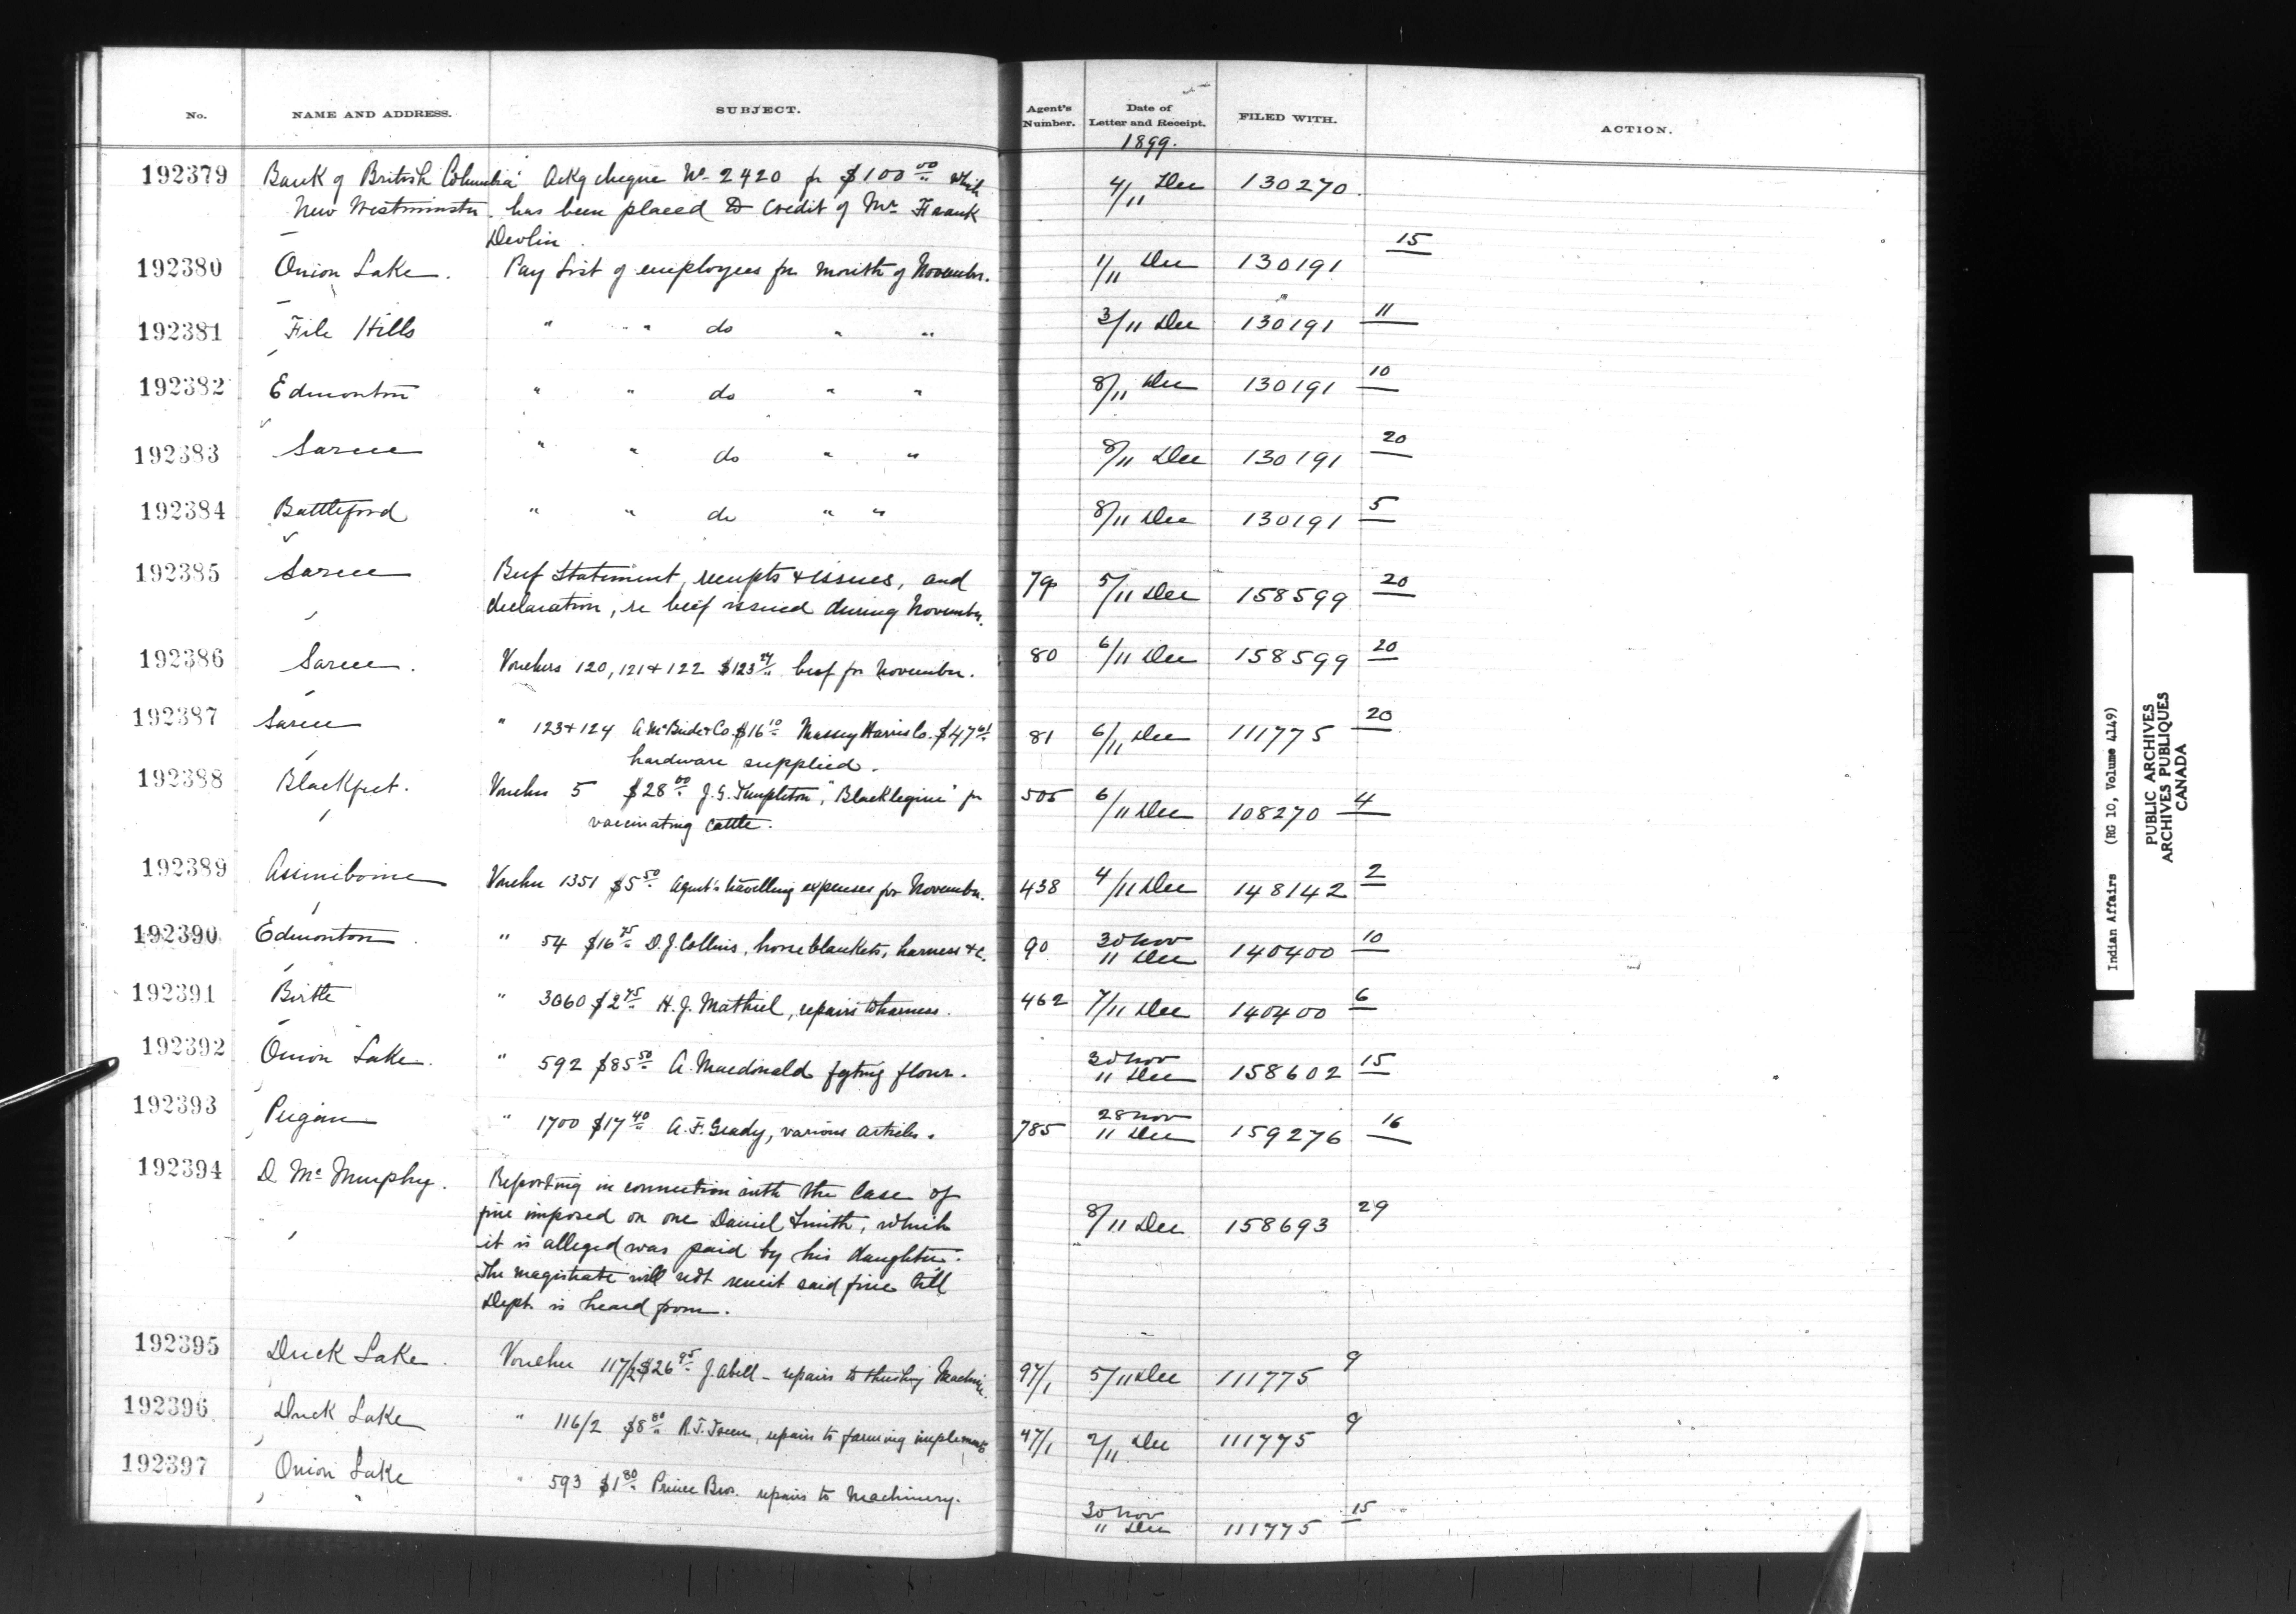 No. NAME AND ADDRESS. SUBJECT. Agent's Number. Date of Letter and Receipt. FILED WITH. ACTION.
1899.
192379 Bank of British Columbia Ackg cheque No 2420 for $100 00 which 4/11 Dec 130270
New Westminster has been placed to credit of Mr Frank
Devlin 15
192380 Onion Lake. Pay List of employees for month of November. 1/11 Dec 130191
192381 File Hills " " do " " 3/11 Dec 130191 11
192382 Edmonton " " do " " 8/11 Dec 130191 10
192383 Sarcee " " do " " 8/11 Dec 130191 20
192384 Battleford " " do " " 8/11 Dec 130191 5
192385 Sarcee Beef Statement, receipts & issues, and 79 5/11 Dec 158599 20
declaration, re beef issued during November.
192386 Sarcee. Vouchers 120, 121 & 122 $123 beef for November. 80 6/11 Dec 158599 20
192387 Sarcee " 123 & 124 A McBride & Co $16 10 Massey Harris Co. $47 81 6/11 Dec 111775 20
hardware supplied.
192388 Blackfeet. Voucher 5 $28 00 J. G. Templeton, "Blacklegine" for 505 6/11 Dec 108270 4
vaccinating cattle.
192389 Assiniboine Voucher 1351 $5 50 Agent's travelling expenses for November. 438 4/11 Dec 148142 2
192390 Edmonton " 54 $16 75 D. J. Collins, horse blankets, harness &c. 90 30 Nov 11 Dec 140400 10
192391 Birtle " 3060 $2 75 H. J. Mathiel, repairs to harness. 462 7/11 Dec 140400 6
192392 Onion Lake. " 592 $85 50 A. Macdonald fgting flour. 30 Nov 11 Dec 158602 15
192393 Peigan " 1700 $17 40 A. F. Grady, various articles. 785 28 Nov 11 Dec 159276 16
192394 D. Mc Murphy. Reporting in connection with the case of
fine imposed on one Daniel Smith, which 8/11 Dec 158693 29
it is alleged was paid by his daughter.
The magistrate will not remit said fine till
Dept. is heard from.
192395 Duck Lake. Voucher 117/2 $26 95 J. Abell - repairs to threshing Machine. 97/1 5/11 Dec 111775 9
192396 Duck Lake " 116/2 $8 80 repairs to farming implements 47/1 2/11 Dec 111775 9
192397 Onion Lake " 593 $1 80 Prince Bros. repairs to Machinery.
30 Nov 11 Dec 111775 15
Indian Affairs (RG 10, Volume 4149)
PUBLIC ARCHIVES
ARCHIVES PUBLIQUES
CANADA